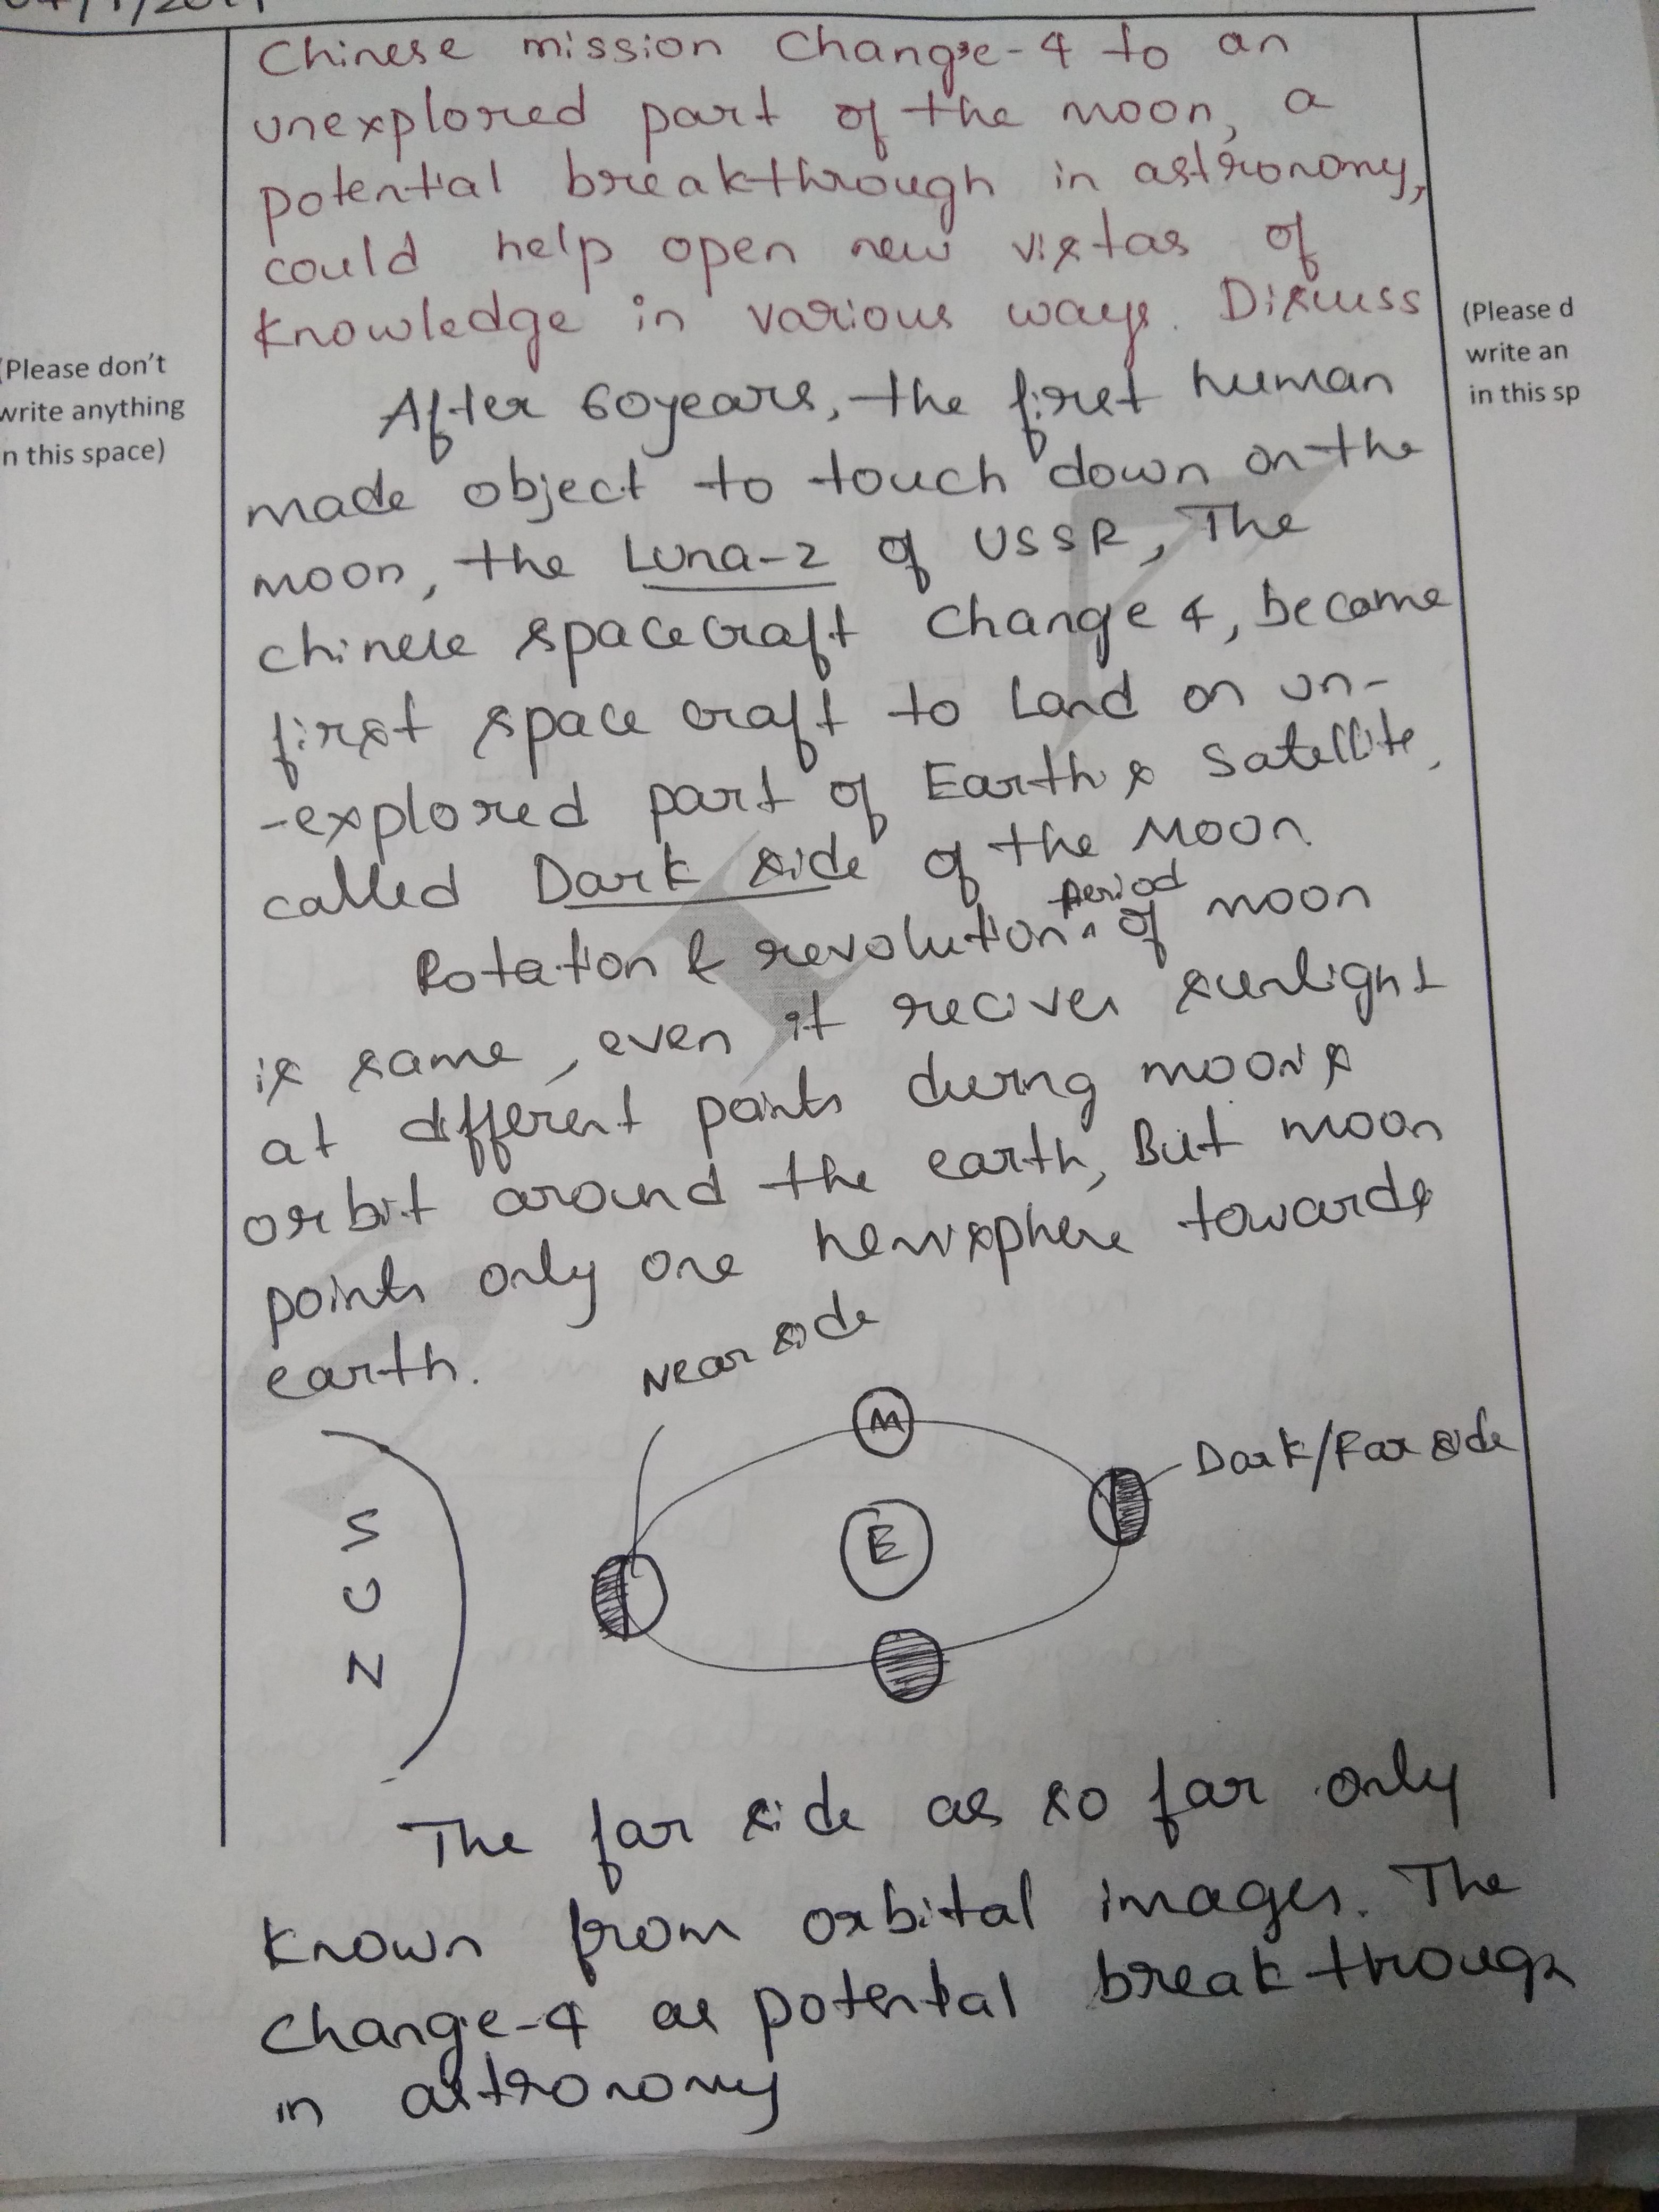 Chinese mission Chang'e-4 to an
unexplored part of the moon, a
potential breakthrough in astronomy,
could help open new vistas of
knowledge in various ways. Discuss
(Please don't
write anything
n this space)
(Please d
write an
in this sp
After 60 years, the first human
made object to touch down on the
moon, the Luna-2 of USSR, The
chinese spacecraft Change 4, became
first space craft to Land on un-
-explored part of Earth's Satellite,
called Dark side of the Moon
Rotation & revolution period of moon
is same, even it recives sunlight
at different points during moon's
orbit around the earth, But moon
points only one hemisphere towards
earth.
Near side
M
Dark/Far side
E
SUN
The far side as so far only
known from orbital images. The
Chang'e-4 as potential breakthrough
in astronomy